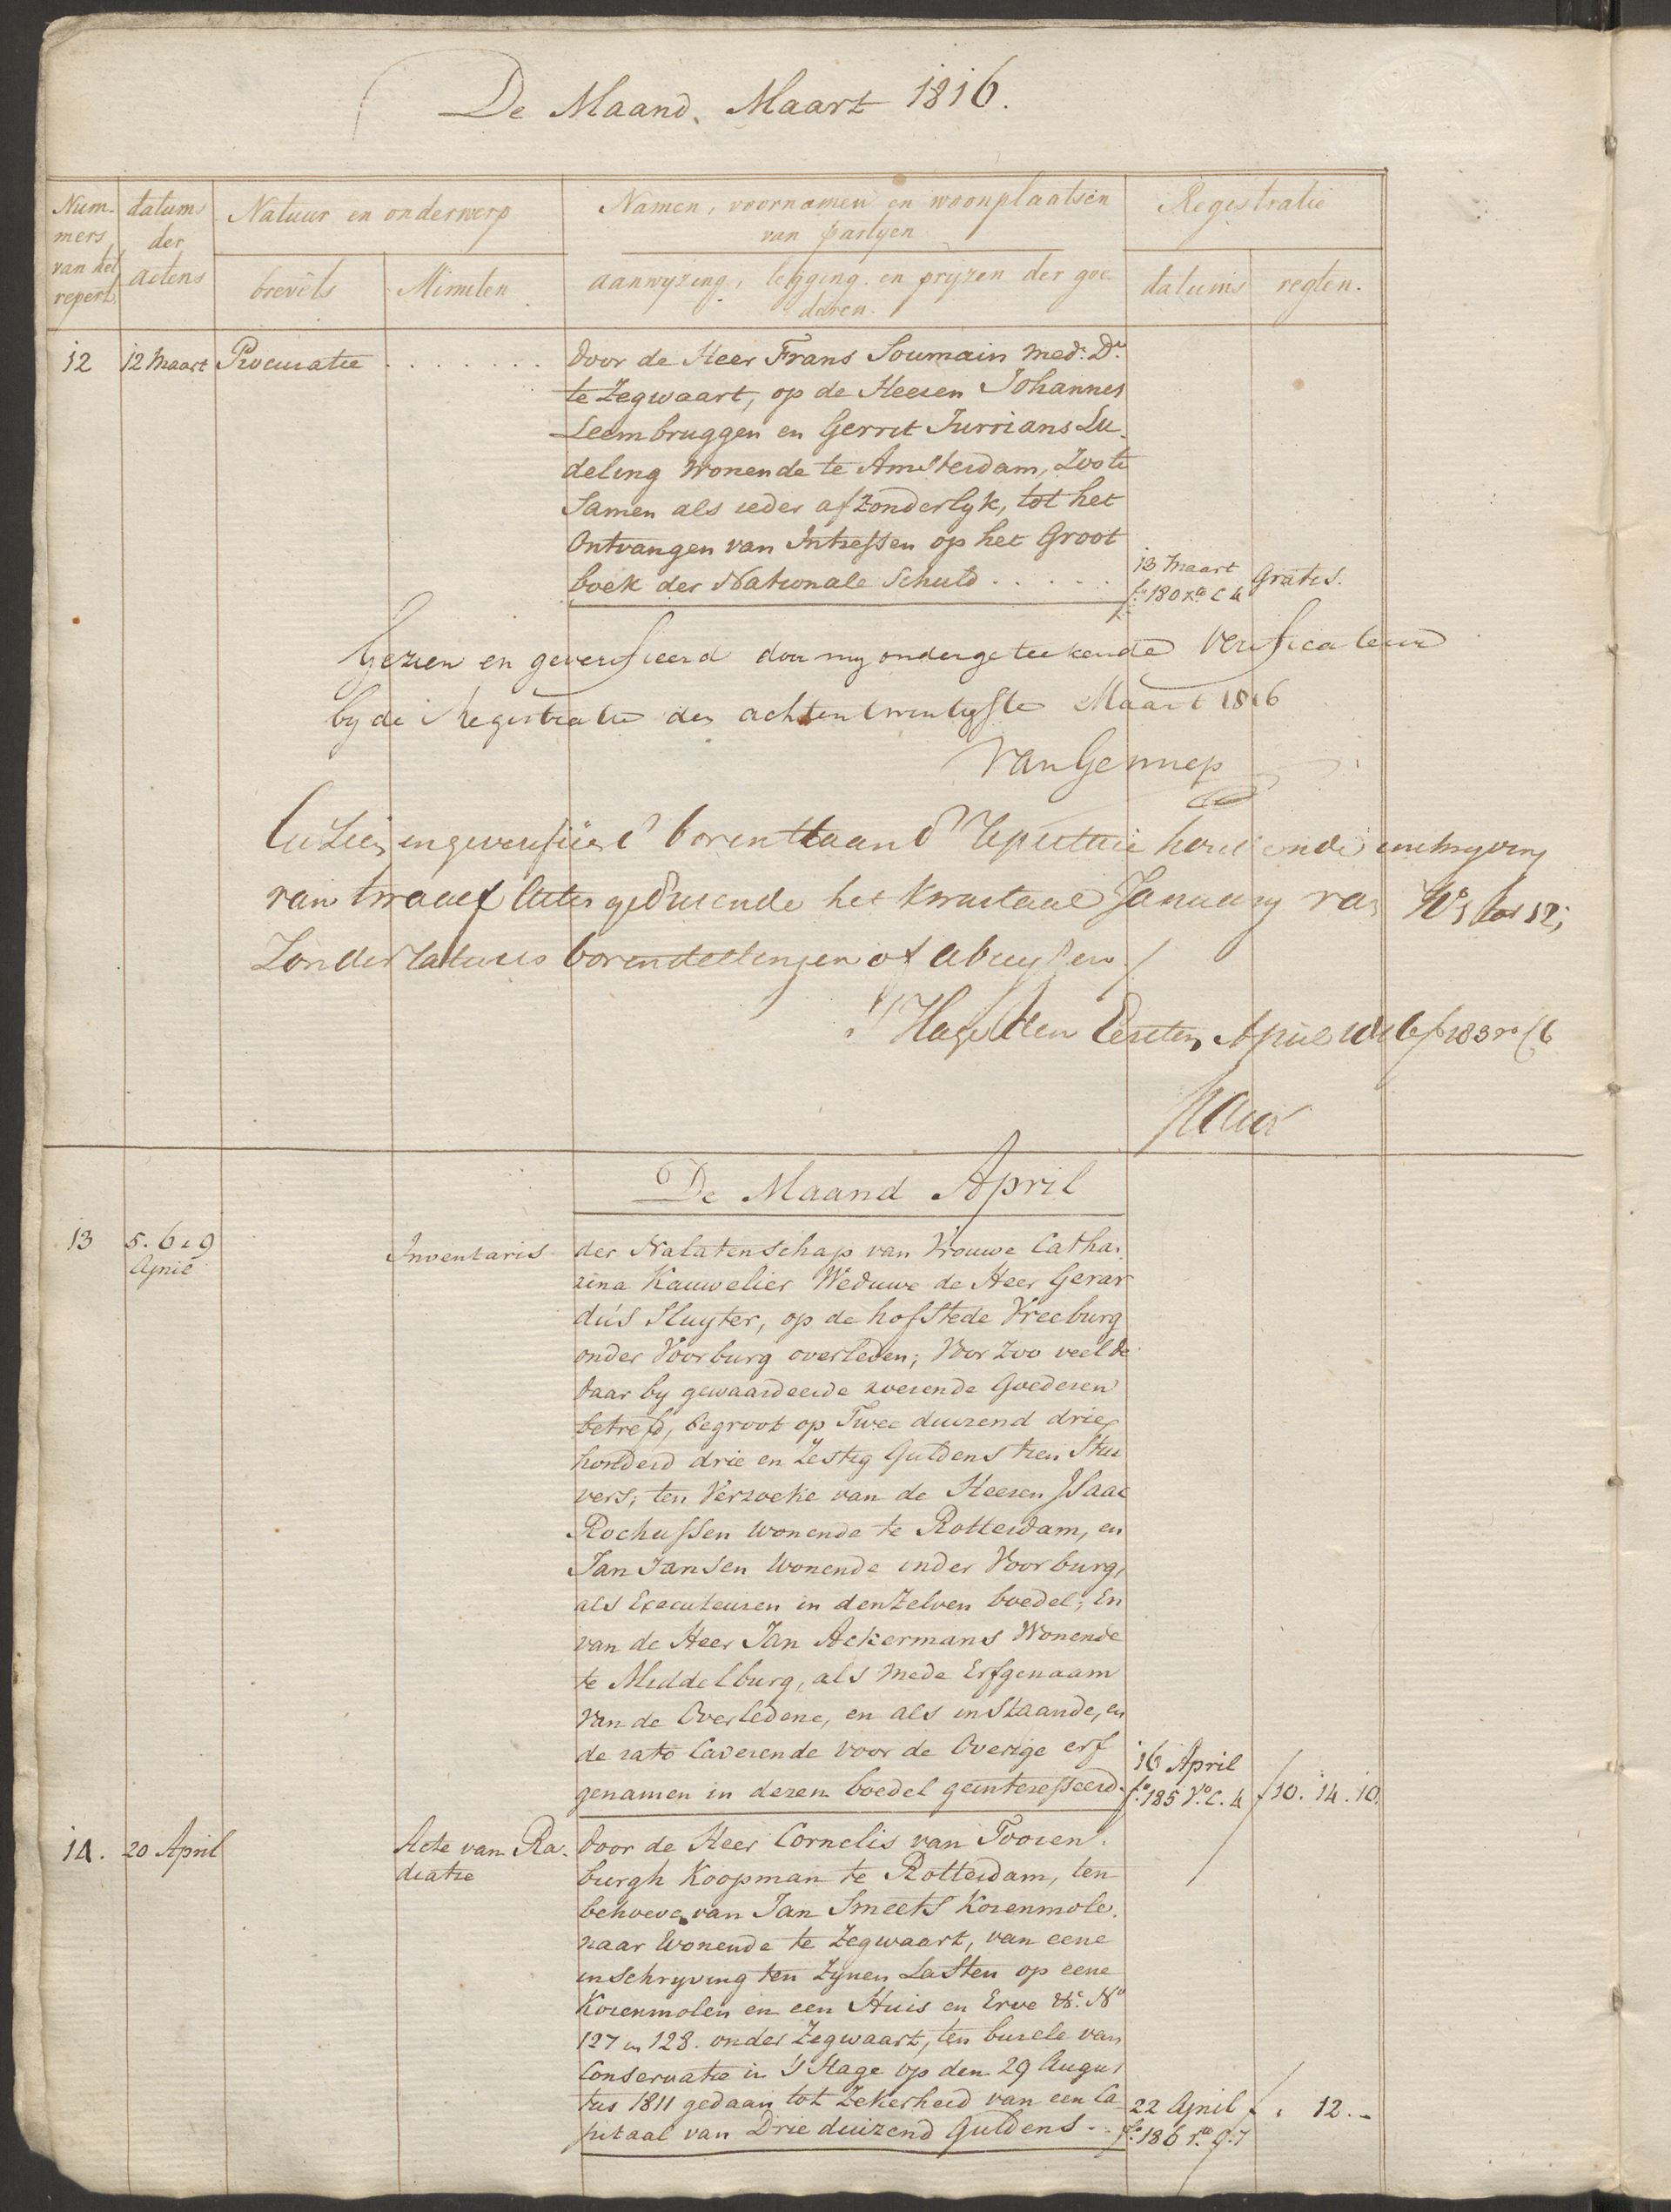 De Maand Maart 1816.
Num-
mers
van het
repert.
datums
der
actens
Natuur en onderwerp
brevéts
Minuten
Namen, voornamen en woonplaatsen
van partyen
aanwyzing, legging en pryzen der goe
deren.
Registratie
datums
regten.
12 12 Maart Procuratie . . . . . . . door de Heer Frans Soumain Med. Dr.
te Zegwaart, op de Heeren Johannes
Leembruggen en Gerrit Jurrians Lu-
deling Wonende te Amsterdam, Zoo te
Samen als ieder afzonderlyk, tot het
Ontvangen van Intressen op het Groot
boek der Nationale Schuld . . . . .
13 Maart
fo. 180 C 4
Gratis.
Gezien en geverifieerd door my ondergeteekende Verificateur
by de Registratie den achtentwintigste Maart 1816
Van Gennep
en geverifieerd bovenstaand houdende inschryving
van twaalf Actes gedurende het Kwartaal January van No. 1 tot 12,
Zonder of abuysen
's Hage den Eersten April 1816 fo 183
De Maand April
13 5. 6 & 9
April
Inventaris der Nalatenschap van Vrouwe Catha-
rina Kauwelier Weduwe de Heer Gerar
dus Sluyter, op de hofstede Vreeburg
onder Voorburg overleden; Voor Zoo veel de
daar by gewaardeerde roerende Goederen
betrefd, begroot op Twee duizend drie
honderd drie en Zestig Guldens tien Stui
vers; ten Verzoeke van de Heeren Isaac
Rochussen wonende te Rotterdam, en
Jan Jansen Wonende onder Voorburg,
als Executeuren in denzelven boedel; En
van de Heer Jan Ackermans Wonende
te Middelburg, als mede Erfgenaam
van de Overledene, en als instaande, en
de rato Caverende voor de Overige erf
genamen in dezen boedel geinteresseerd.
16 April
fo. 185 Vo. C. 4
f 10. 14. 10.
14. 20 April
Acte van Ra-
diatie
door de Heer Cornelis van Tooren-
burgh Koopman te Rotterdam, ten
behoeve van Jan Smeets Korenmole-
naar Wonende te Zegwaart, van eene
inschryving ten Zynen Lasten op eene
Korenmolen en een Huis en Erve No
127 en 128. onder Zegwaart, ten burele van
Conservatie in 's Hage op den 29 Augus
tus 1811 gedaan tot Zekerheid van een Ca
pitaal van Drie duizend Guldens . .
22 April
fo. 186 C. 7
f " 12. -